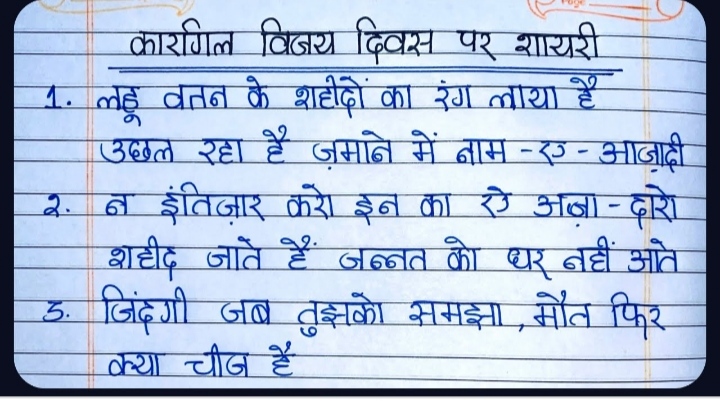 कारगिल विजय दिवस पर शायरी
1. लहू वतन के शहीदों का रंग लाया है
उछल रहा है ज़माने में नाम -ए- आज़ादी
2. न इंतिज़ार करो इन का ऐ अज़ा - दारो
शहीद जाते हैं जन्नत को घर नहीं आते
3. जिंदगी जब तुझको समझा, मौत फिर
क्या चीज है